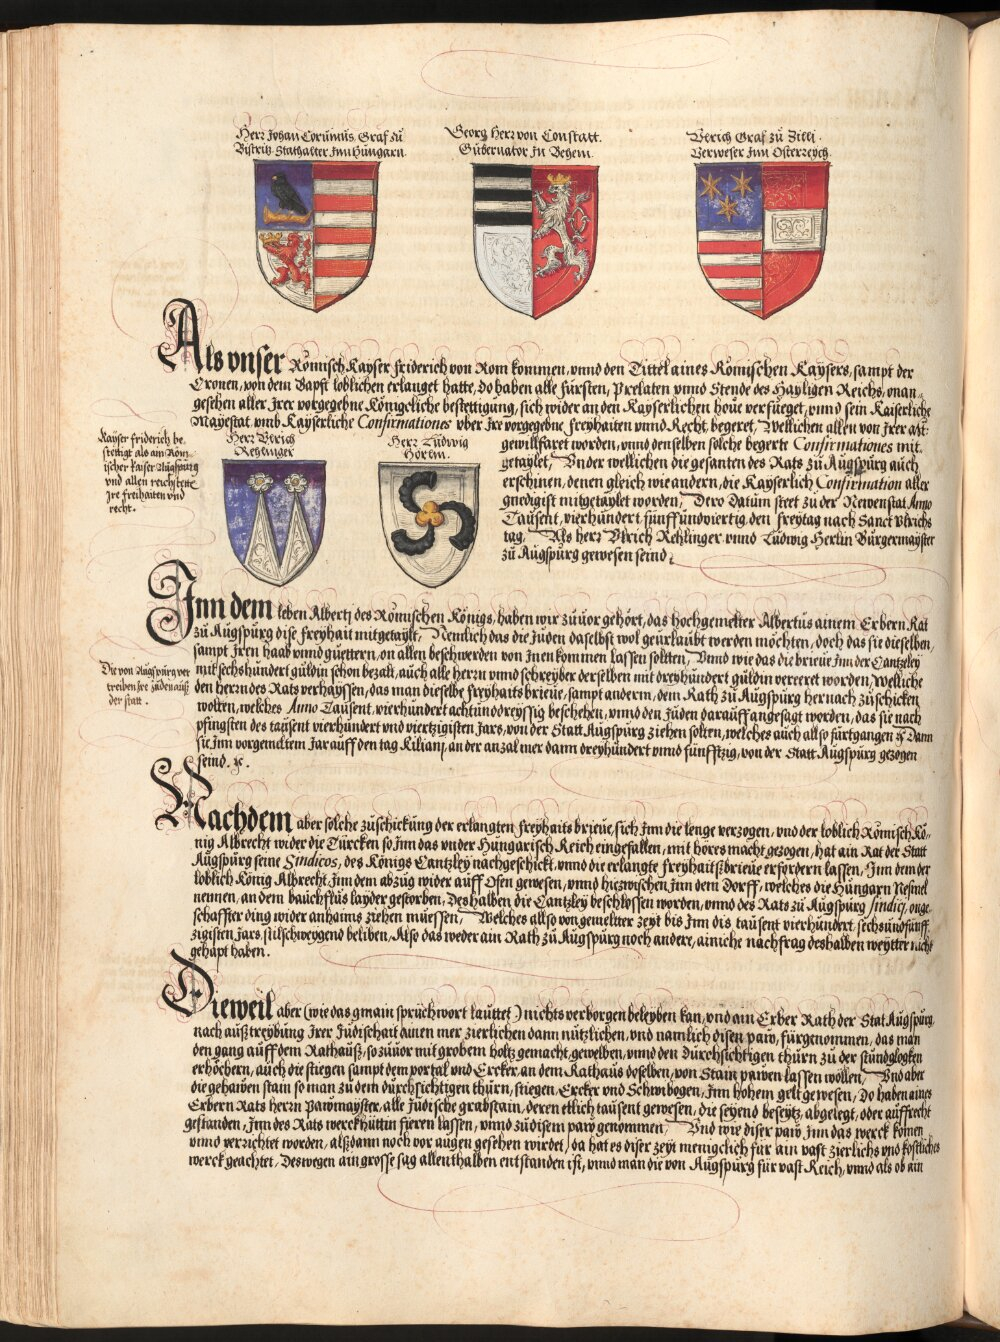 Herr Johan Corvinus Graf zů
Bistritz Stathalter Jnn Hungarn.
Georg Herr von Constatt.
Gubernator Jn Behem.
Vlrich Graf zů Zilli
Verweser Jnn Osterreych.
Als vnser Römisch Kayser friderich von Rom kommen, vnnd den Tittel aines Römischen Kaysers, sampt der
Cronen, von dem Bapst loblichen erlanget hatte, Do haben alle fürsten, Prelaten vnnd Stende des Hayligen Reichs, vnan-
gesehen aller Jrer vorgegebne Königckliche bestettigung, sich wider an den Kayserlichen houe verfüeget, vnnd sein Kaiserliche
Mayestat vmb Kayserliche Confirmationes vber Jre vorgegebne freyhaiten vnnd Recht, begeret, Wellichen allen von Jrer Mt:
gewillfaret worden, vnnd denselben solche begerte Confirmationes mit
getaylet, Vnder wellichen die gesanten des Rats zů Augspurg auch
erschinen, denen gleich wie andern, die Kayserlich Confirmation aller
gnedigist mitgetaylet worden, Dero Datum steet zů der Newenstat Anno
Tausent, vierhundert funffundviertig, den freytag nach Sanct Vlrichs
tag, Als herr Vlrich Rehlinger vnnd Ludwig Herlin Burgermayster
zů Augspurg gewesen seind.
Kayser friderich be-
stettigt als ain Röm-
ischer kaiser Augspurg
vnd allen reichstette
Jre freihaiten vnd
recht.
Herr Vlrich
Rehlinger
Herr Ludwig
Hörlin.
Jnn dem leben Alberti des Römischen Königs, haben wir zůuor gehört, das hochgemelter Albertus ainem Erbern Rat
zů Augspurg dise freyhait mitgetaylt, Nemlich das die Juden daselbst wol geurlaubt werden möchten, doch das sie dieselben,
sampt Jren haab vnnd güettern, on allen beschwerden von Jnen kommen lassen soltten, Vnnd wie das die brieue Jnn der Cantzley
mit sechshundert guldin schon bezalt, auch alle herrn vnnd schreyber derselben mit dreyhundert guldin vereret worden, Welliche
den herrn des Rats verhayssen, das man dieselbe freyhaits brieue, sampt anderm, dem Rath zů Augspurg hernach zůschicken
wolten, welches Anno Tausent, vierhundert achtunddreyssig beschehen, vnnd den Juden darauff angesagt worden, das sie nach
pfingsten des tausent vierhundert vnd viertzigisten Jars, von der Statt Augspurg ziehen solten, welches auch allso fürtgangen ꝛc Dann
sie Jnn vorgemeltem Jar auff den tag Kiliani, an der anzal mer dann dreyhundert vnnd fünfftzig, von der Statt Augspurg gezogen
seind. ꝛc.
Die von Augspurg ver-
treiben Jre Juden auß
der statt.
Nachdem aber solche zůschickung der erlangten freyhaits brieue, sich Jnn die lenge verzogen, vnd der loblich Römisch Kö-
nig Albrecht wider die Türcken so Jnn das vnder Hungarisch Reich eingefallen, mit höres macht gezogen, hat ain Rat der Statt
Augspurg seine Sindicos, des Königs Cantzley nachgeschickt, vnnd die erlangte freyhaitßbrieue erfordern lassen, Jnn dem der
loblich König Albrecht, Jnn dem abzug wider auff Ofen gewesen, vnnd hiezwischen Jnn dem Dorff, welches die Hungarn Nesmel
nennen, an dem bauchflus layder gestorben, Deshalben die Cantzley beschlossen worden, vnnd des Rats zů Augspurg sindici, onge-
schaffter ding wider anhaims ziehen müessen, Welches allso von gemeltter zeyt bis Jnn dis tausent vierhundert sechsundfunff-
zigisten Jars, stilschweygend beliben, Also das weder ain Rath zů Augspurg noch andere, ainiche nachfrag deshalben weytter nicht
gehapt haben.
Dieweil aber (wie das gmain sprüchwort lauttet) nichts verborgen beleyben kan, vnd ain Erber Rath der Stat Augspurg,
nach außtreybung Jrer Judischait ainen mer zierlichen dann nützlichen, vnd namlich disen paw, fürgenommen, das man
den gang auff dem Rathauß, so zůuor mit grobem holtz gemacht, gewelben, vnnd den durchsichtigen thurn zů der stundglogken
erhöchern, auch die stiegen sampt dem portal vnd Ercker, an dem Rathaus doselben, von Stain pawen lassen wollen, Vnd aber
die gehawen stain so man zů dem durchsichtigen thurn, stiegen, Ercker vnd Schwibogen, Jnn hohem gelt gewesen, Do haben aines
Erbern Rats herrn Pawmayster, alle Judische grabstain, deren etlich tausent gewesen, die seyend beseytz abgelegt, oder auffrecht
gestanden, Jnn des Rats werckhüttin fieren lassen, vnnd zů disem paw genommen, Vnd wie diser paw Jnn das werck komen
vnnd verrichtet worden, alßdann noch vor augen gesehen wirdet, da hat es diser zeyt menigclich für ain vast zierlichs vnd köstliches
werck geachtet, Deswegen ain grosse sag allenthalben entstanden ist, vnnd man die von Augspurg für vast Reich, vnnd als ob ain